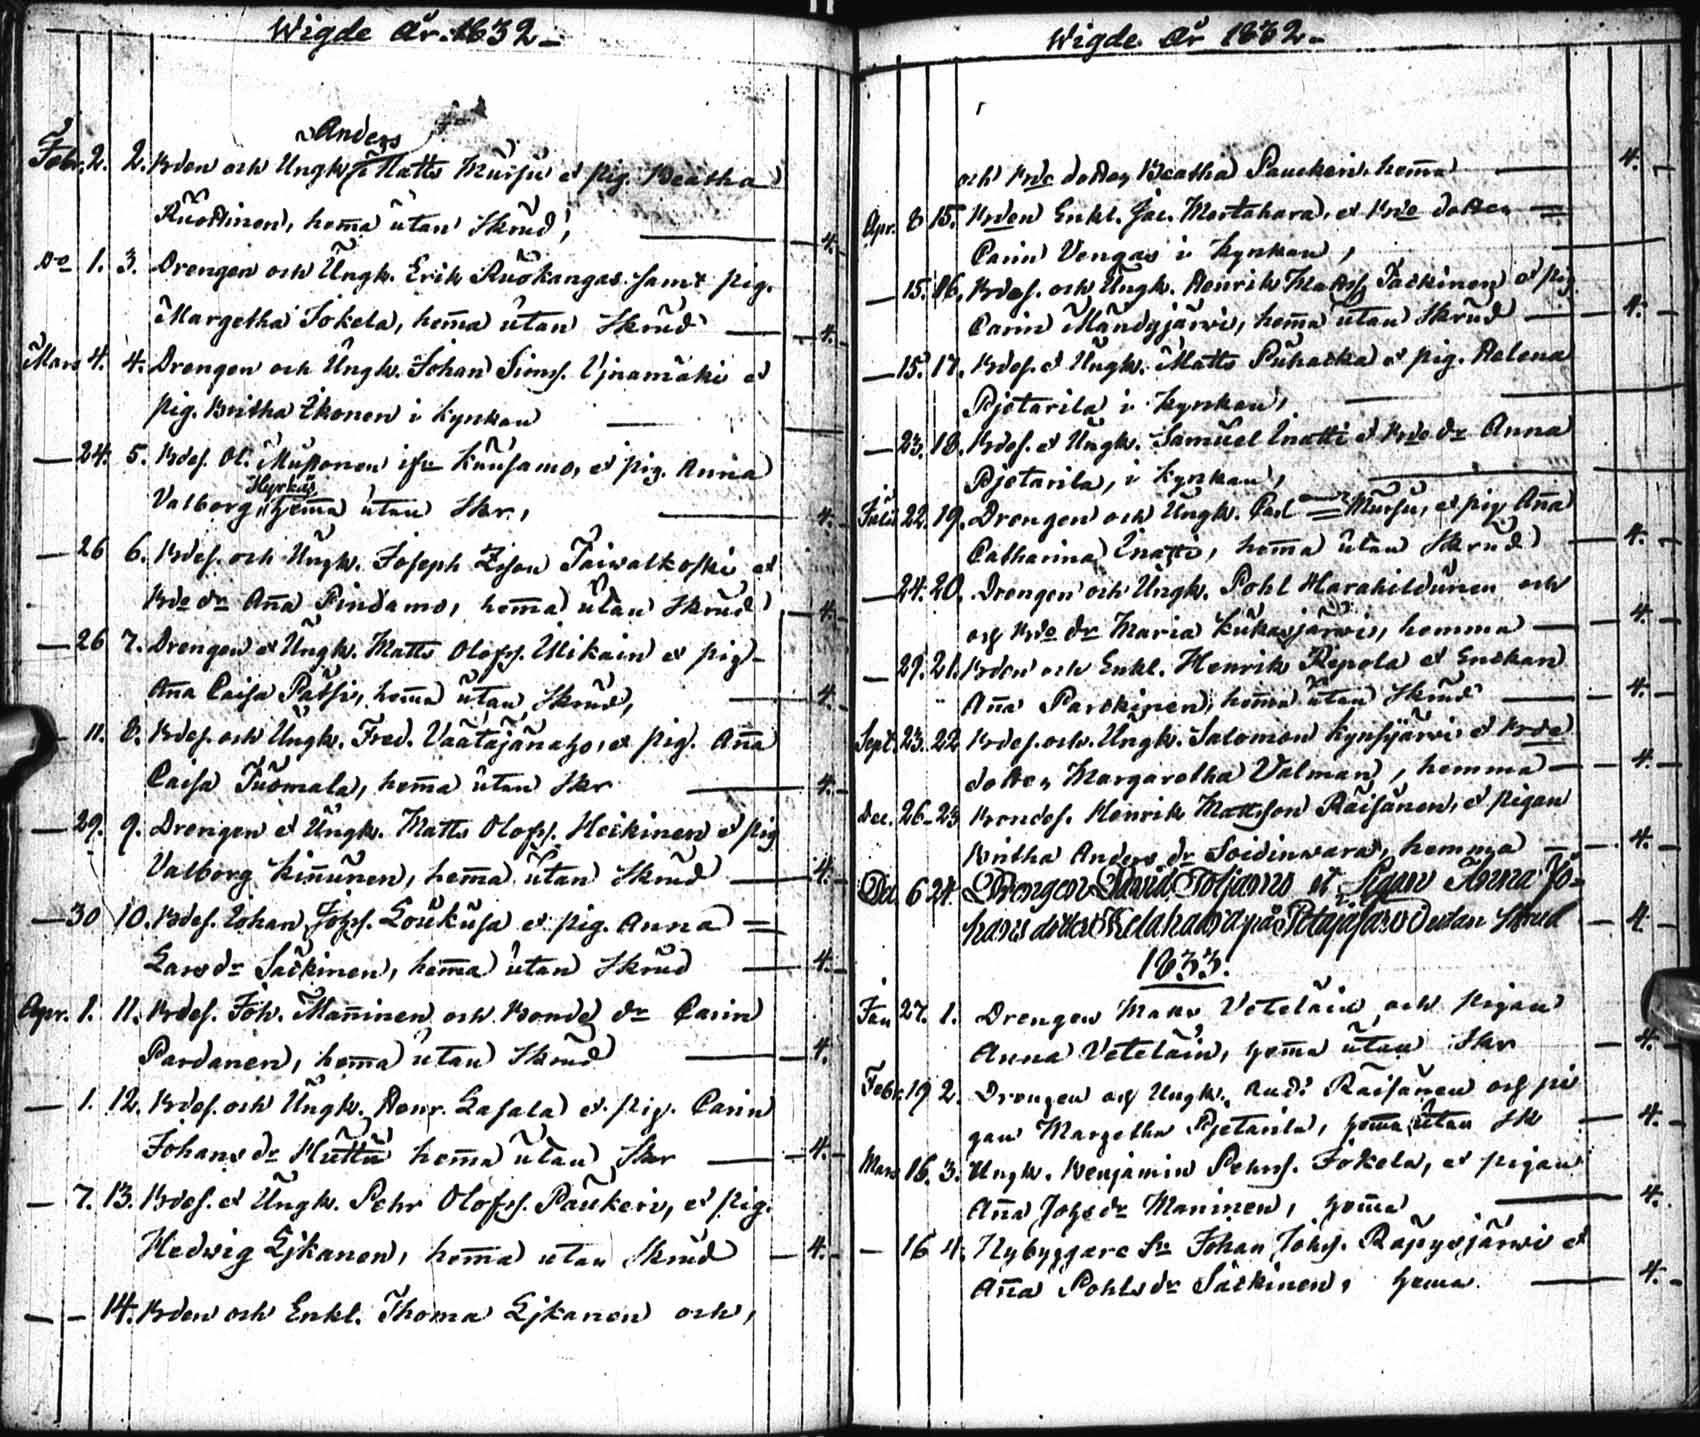 Wigde År 1832 –
Anders
Febr. 2. 2. Bden och Ungk. Matts Mursu et pig. Beatha
Ruottinen, hem̄a utan Skrud, 4.
Do 1. 3. Drengen och Ungk. Erik Ruokangas samt pig.
Margetha Jokela, hem̄a utan Skrud 4.
Mars 4. 4. Drengen och Ungk. Johan Sims. Ijnamäki et
pig. Britha Ikonen i Kyrkan
— 24. 5. Bdes. Ol. Mustonen ifrn Kuusamo, et pig. Anna
Hyrkäs
Valborg hem̄a utan Skr. 4.
— 26 6. Bdes. och Ungk. Joseph Taiwalkoski et
Bde dr Aña Pindamo, hem̄a utan Skrud 4.
— 26 7. Drengen et Ungk. Matts Olofss. Ulikain et pig
Aña Caisa Pätsi, hem̄a utan Skrud, 4.
— 11. 8. Bdes. och Ungk. Fred. Väätäjänaho, et pig. Aña
Caisa Tuomala, hem̄a utan Skr 4.
— 29. 9. Drengen et Ungk. Matts Olofss. Heikinen et pig
Valborg Kiñunen, hem̄a utan Skrud 4.
— 30 10. Bdes. Johan Johss. Loukusa et pig. Anna =
Lars dr Säckinen, hem̄a utan Skrud 4.
Apr. 1. 11. Bdes. Joh. Mañinen och Bonde dr Carin
Pardanen, hem̄a utan Skrud 4.
— 1. 12. Bdes. och Ungk. Henr. Lasala et pig. Carin
Johans dr Huttu hem̄a utan Skr 4.
— 7. 13. Bdes. et Ungk. Pehr Olofss. Paukeri, et pig.
Hedwig Lijkanen, hem̄a utan Skrud 4.
— – 14. Bden och Enkl. Thoma Lijkanen och,
Wigde År 1832 –
och Bde dotter Beatha Pauckeri, hem̄a 4.
Apr. 8 15. Bden Enkl. Jac. Mertahara, et Bde dotter =
Carin Vengas i Kyrkan,
— 15. 16. Bdes. och Ungk. Henrik Matss Säckinen et pig
Carin Mändyjärwi, hem̄a utan Skrud 4.
— 15. 17. Bdes. et Ungk. Matts Puhacka et pig. Helena
Pjetarila i Kyrkan,
— 23. 18. Bdes. et Ungk. Samuel Inatti et Bde dr Anna
Pjetarila, i Kyrkan,
Julii 22. 19. Drengen och Ungk. Carl Mursu, et pig Aña
Catharina Inatti, hem̄a utan Skrud 4.
— 24. 20. Drengen och Ungk. Pohl Harahildunen och
och Bde dr Maria Kukasjärwi, hemma 4.
— 29. 21. Bden och Enkl. Henrik Repola et Enckan
Aña Parckinen, hem̄a utan Skrud 4.
Sept. 23. 22 Bdes. och Ungk. Salomon Kynsijärwi et Bde
dotter Margaretha Valman, hemma 4.
Dec. 26 – 23 Bondes. Henrik Mattsson Räisänen, et pigan
Britha Anders dr Soidinwara, hemma 4.
Dec 6 24. Drengen David Toljamo et Pigan Anna Jo=
hans dotter Kelahaara på Potajajärvi utan Skrud 4
1833.
Jan 27. 1. Drengen Matts Veteläin och pigan
Anna Veteläin, hem̄a utan Skr 4.
Febr. 19 2. Drengen och Ungk. And: Räisänen och pi
gan Margetha Pjetarila, hem̄a utan Sk 4.
Mars 16. 3. Ungk. Benjamin Pehrss. Jokela, et pigan
Aña Johs dr Maninen, hem̄a 4.
— 16 4. Nybyggare Sn Johan Johss. Räpysjärwi et
Aña Pohls dr Säckinen, hema 4.